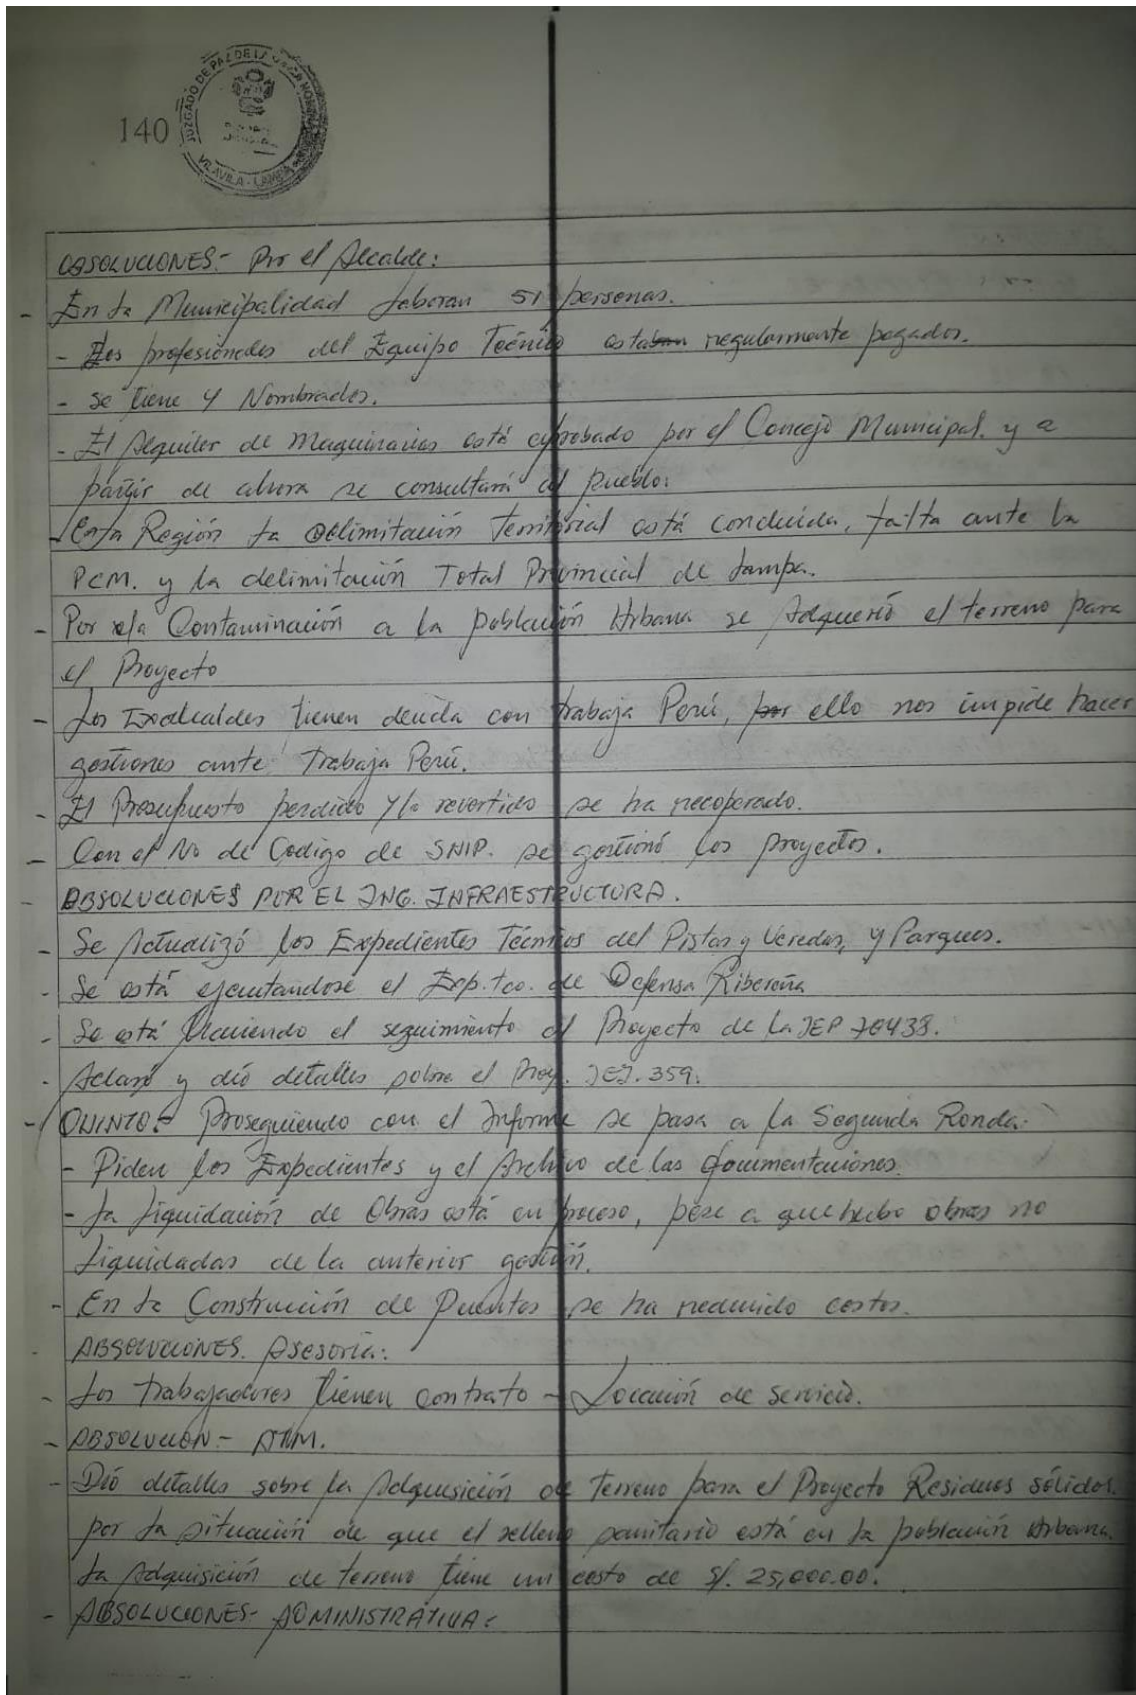 140
JUZGADO DE PAZ DE
VILAVILA - LAMPA
ABSOLUCIONES.- Por el Alcalde:
- En la Municipalidad laboran 51 personas.
- Los profesionales del Equipo Técnico están regularmente pagados.
- Se tiene 4 Nombrados.
- El Alquiler de Maquinarias está aprobado por el Concejo Municipal. y a
partir de ahora se consultará al pueblo.
Región la delimitación Territorial está concluida, falta ante la
PCM. y la delimitación Total Provincial de Lampa.
- Por la Contaminación a la población Urbana se Adquerió el terreno para
el Proyecto
- Los Exalcaldes tienen deuda con trabaja Perú, por ello nos impide hacer
gestiones ante Trabaja Perú.
- El Presupuesto perdido y/o revertido se ha recoperado.
- Con el No de Codigo de SNIP. se gestionó los proyectos.
- ABSOLUCIONES POR EL ING. INFRAESTRUCTURA.
- Se Actualizó los Expedientes Técnicos del Pistas y Veredas, y Parques.
- Se está ejecutandose el Exp. tco. de Defensa Ribereña
- Se está haciendo el seguimiento al Proyecto de la IEP 70438.
- Aclaró y dió detalles sobre el Proy. IEI. 359.
- QUINTO.- Proseguiendo con el Informe se pasa a la Segunda Ronda.
- Piden los Expedientes y el Archivo de las documentaciones.
- La liquidación de Obras está en proceso, pese a que hubo obras no
liquidadas de la anterior gestión.
- En la Construcción de Puentes se ha reducido costos.
- ABSOLUCIONES. Asesoría:
- Los trabajadores tienen contrato - Locación de servicio.
- ABSOLUCION.- ATM.
- Dió detalles sobre la Adquisición de terreno para el Proyecto Residuos sólidos.
por la situación de que el relleno sanitario está en la población Urbana.
la Adquisición de terreno tiene un costo de S/. 25,000.00.
- ABSOLUCIONES- ADMINISTRATIVA: